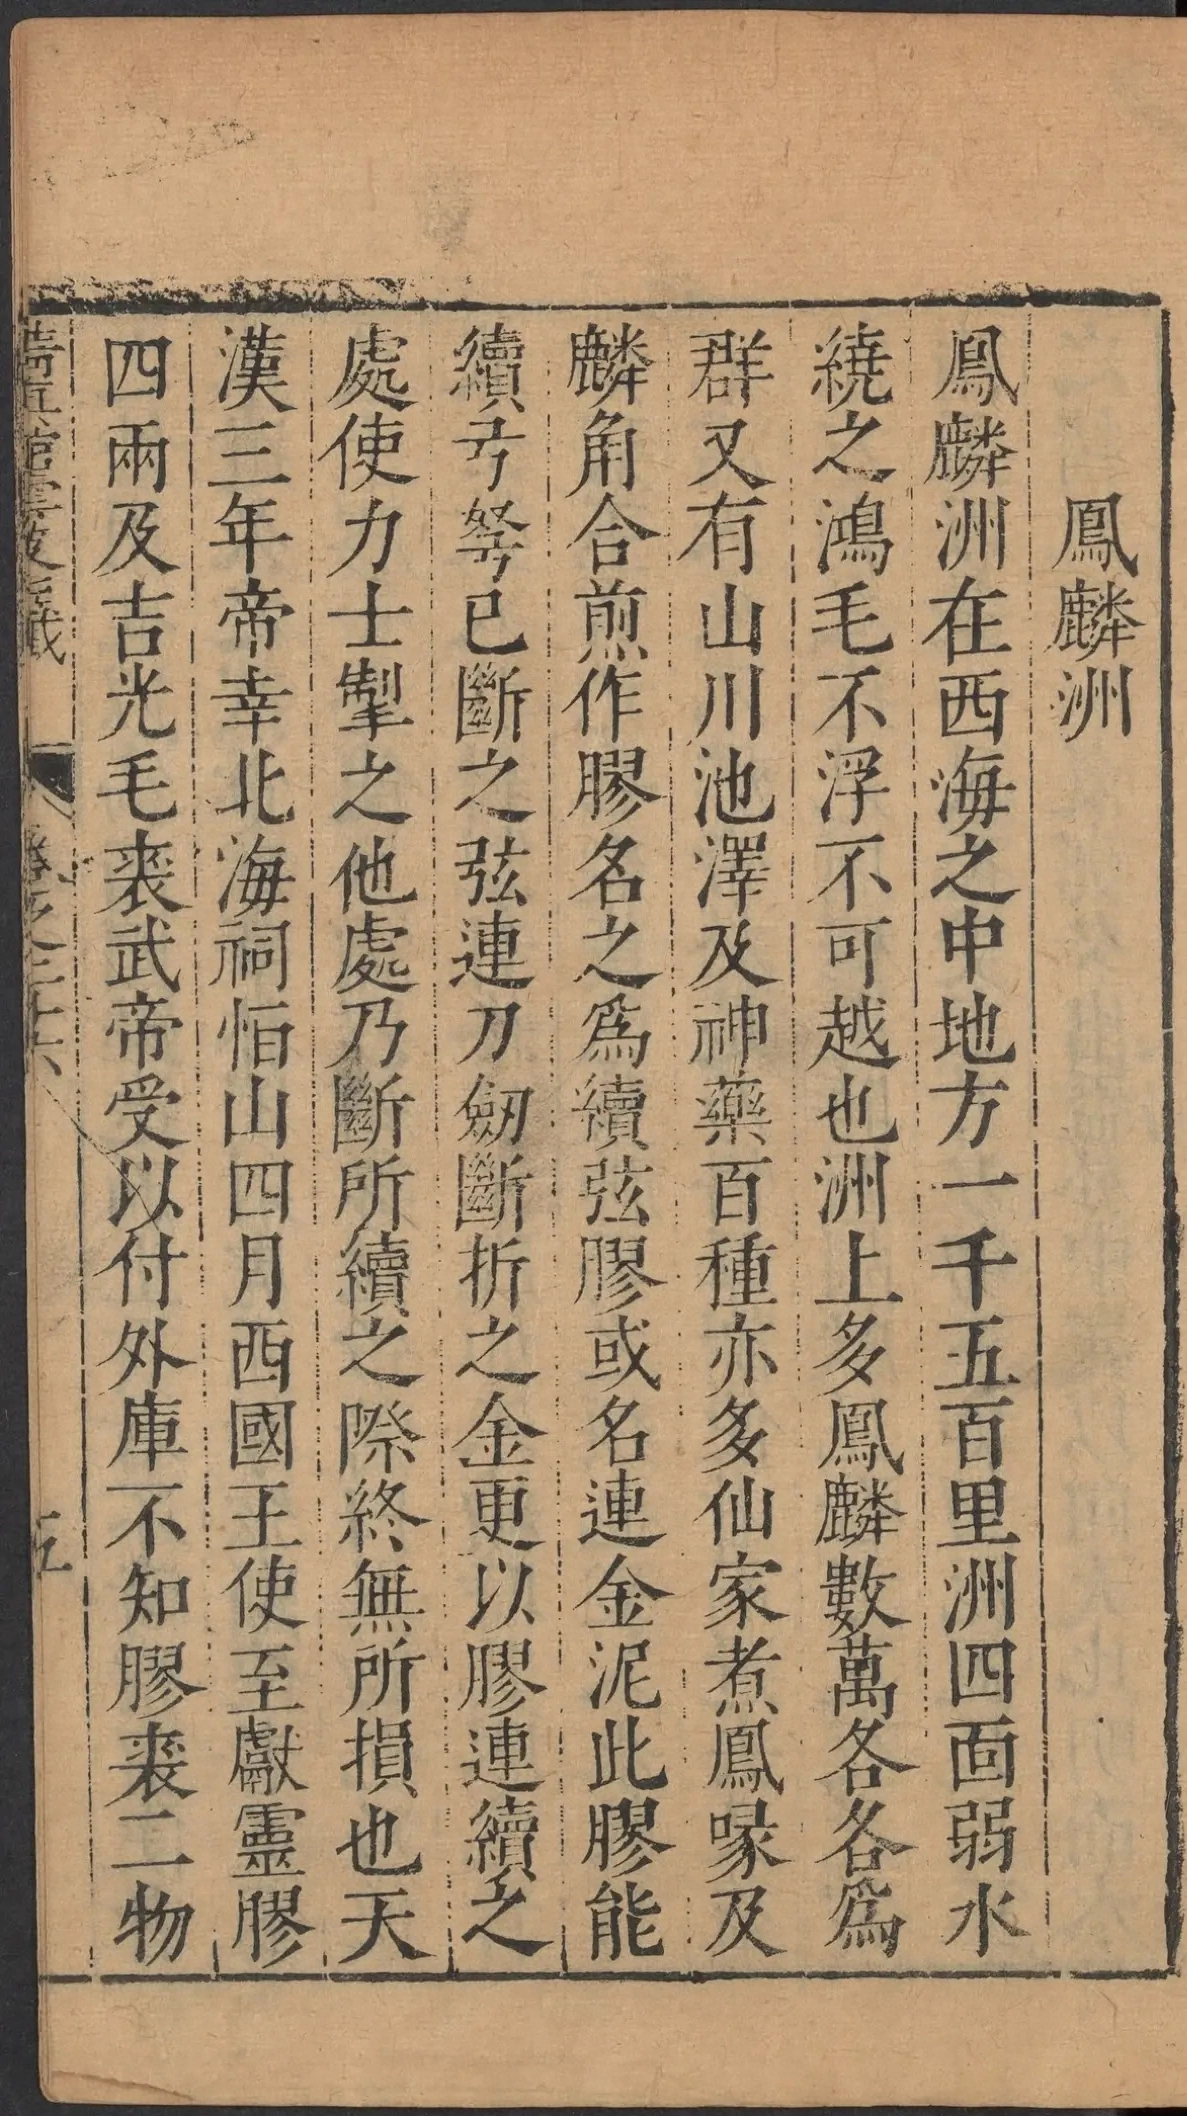 鳳麟洲
鳳麟洲在西海之中地方一千五百里洲四面弱水
繞之鴻毛不浮不可越也洲上多鳳麟數萬各各爲
群又有山川池澤及神藥百種亦多仙家煮鳳喙及
麟角合煎作膠名之爲續弦膠或名連金泥此膠能
續弓弩已斷之弦連刀劒斷折之金更以膠連續之
處使力士掣之他處乃斷所續之際終無所損也天
漢三年帝幸北海祠恒山四月西國王使至獻靈膠
四兩及吉光毛裘武帝受以付外庫不知膠裘二物
清真館雲笈七籤 卷之二十六 五